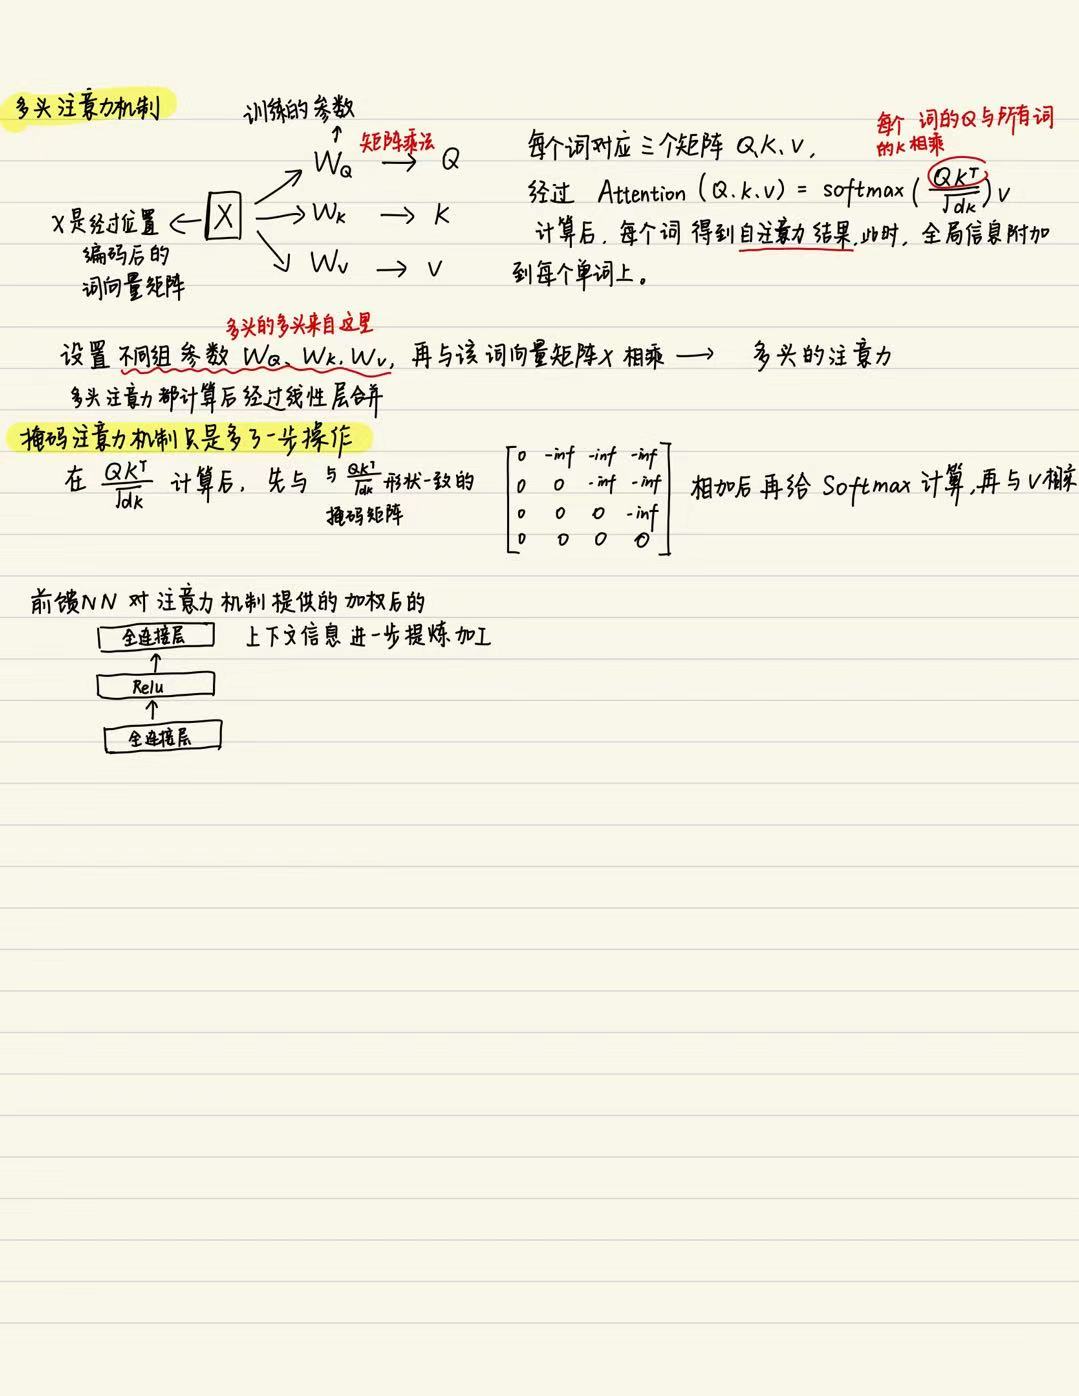 多头注意力机制
训练的参数
矩阵乘法
W_Q → Q
X
W_K → K
W_V → V
X是经过位置
编码后的
词向量矩阵
每个词的Q与所有词
的K相乘
每个词对应三个矩阵 Q、K、V,
经过 Attention (Q.K.V) = softmax(QK^T/√dk)V
计算后, 每个词得到自注意力结果,此时, 全局信息附加
到每个单词上。
多头的多头来自这里
设置不同组参数 W_Q、W_K、W_V, 再与该词向量矩阵X相乘 → 多头的注意力
多头注意力都计算后经过线性层合并
掩码注意力机制只是多了一步操作
在 QK^T/√dk 计算后, 先与 与QK^T/√dk形状一致的
掩码矩阵
0 -inf -inf -inf
0 0 -inf -inf
0 0 0 -inf
0 0 0 0
相加后再给 Softmax 计算,再与V相乘
前馈NN 对注意力机制提供的加权后的
上下文信息进一步提炼加工
全连接层
Relu
全连接层